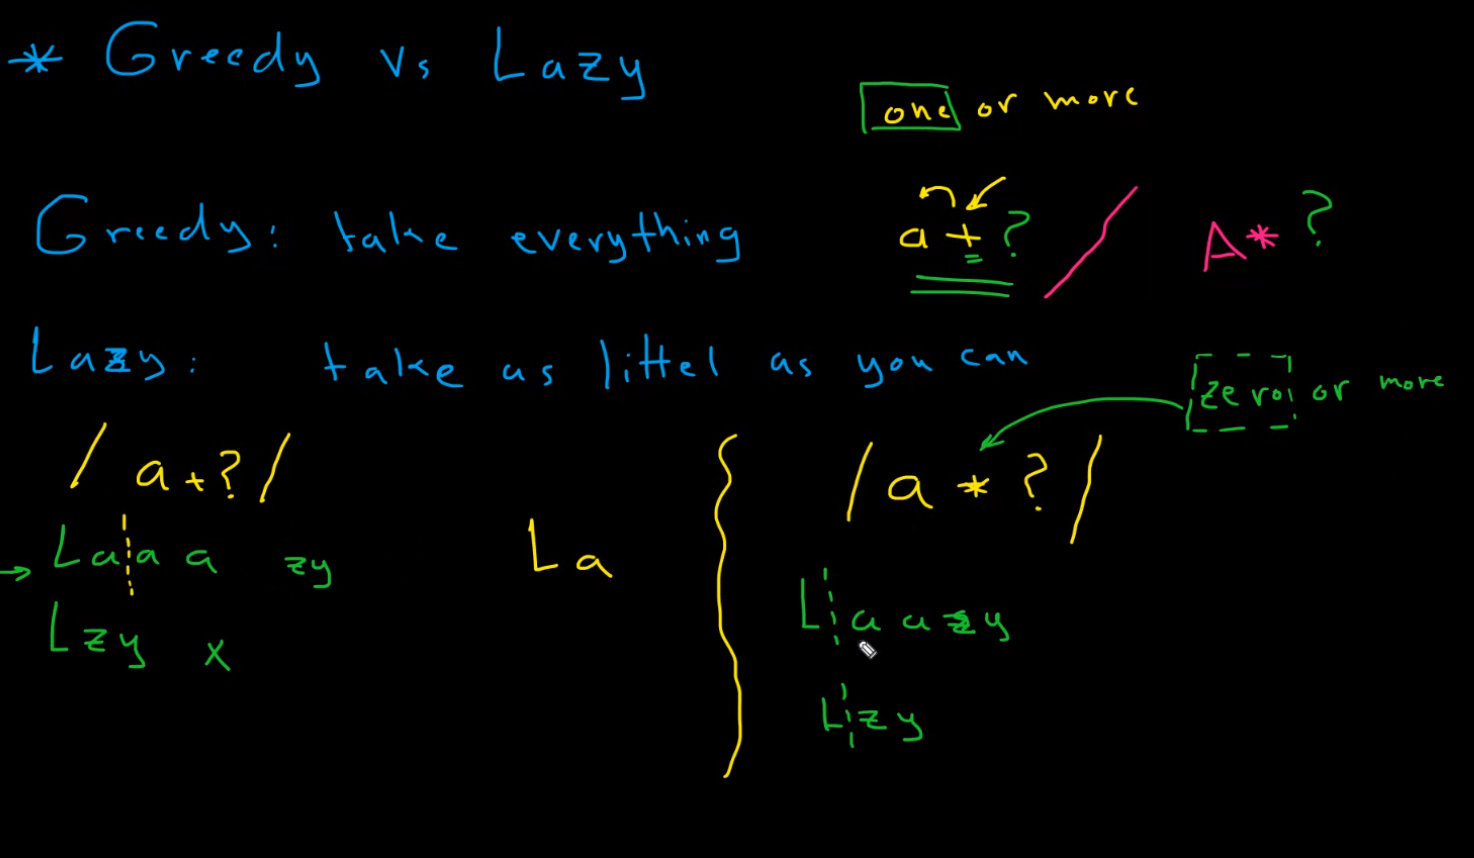 * Greedy vs Lazy
one or more
Greedy: take everything
a+? / A*?
Lazy: take as littel as you can
zero or more
/a+?/
/a*?/
Laaa zy
La
Lzy x
Laazy
Lzy